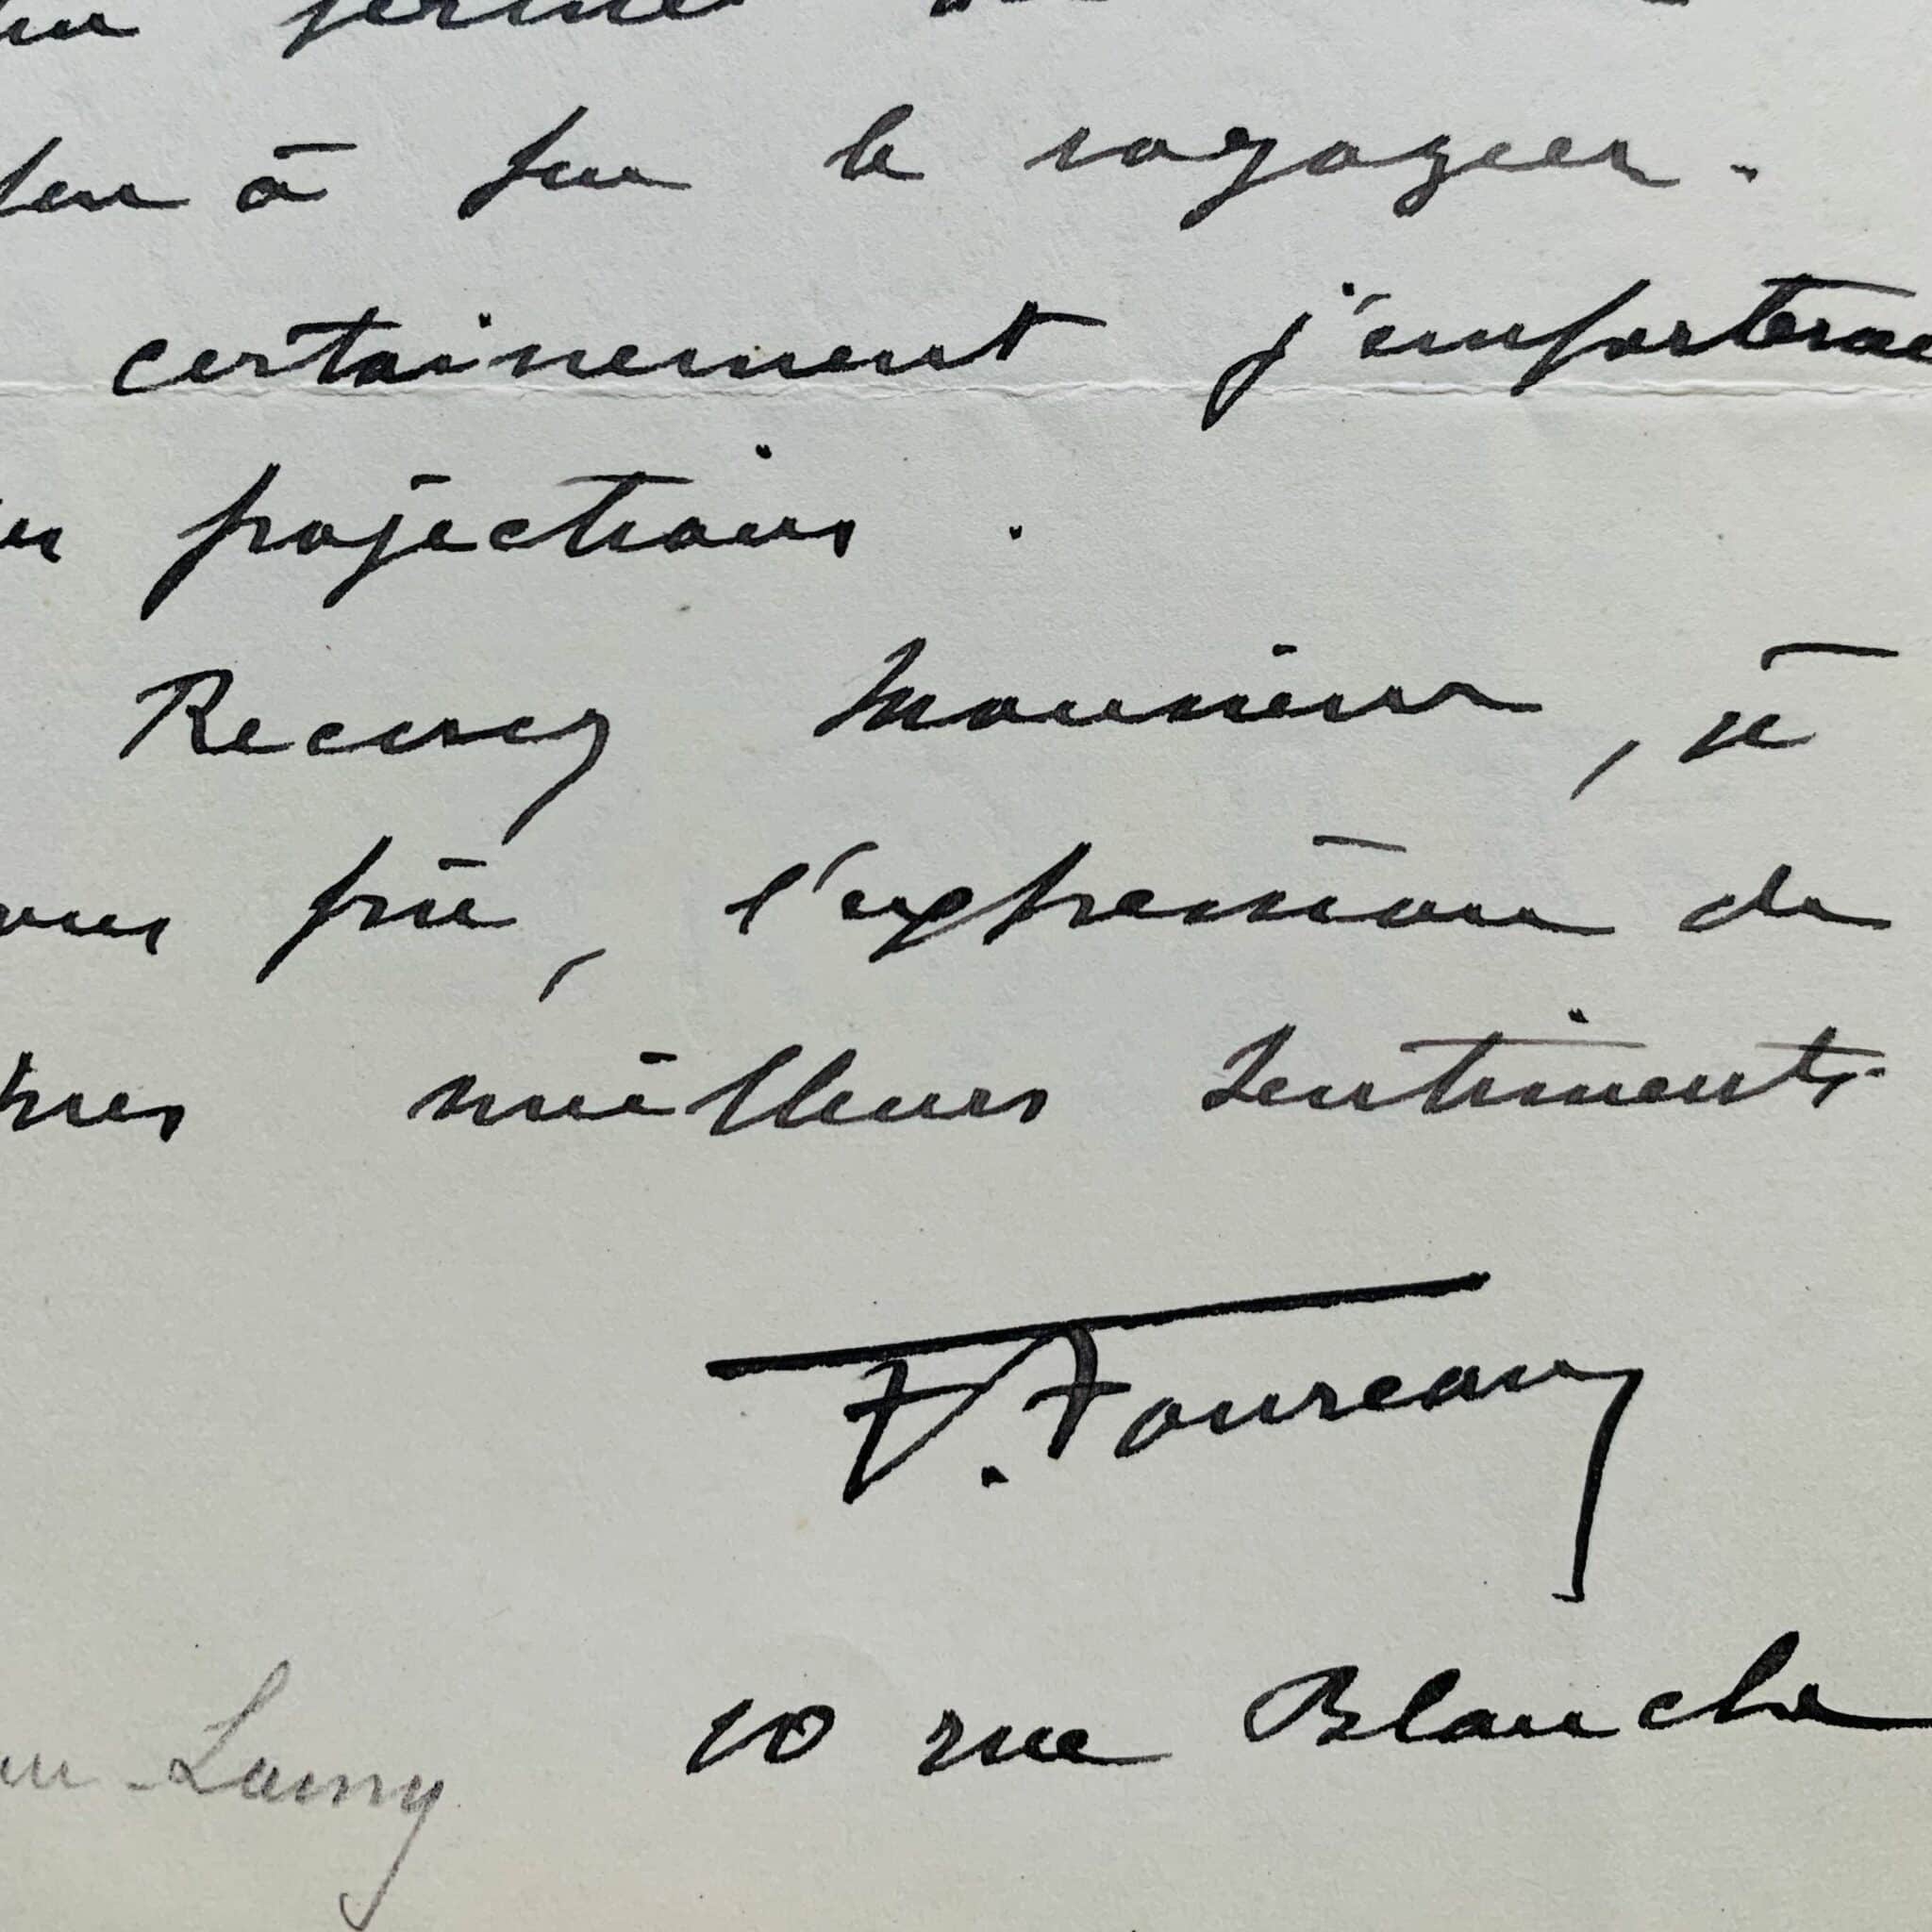 à peu le voyageur.
certainement j'emporterai
projections.
Recevez Monsieur, je
vous prie, l'expression de
mes meilleurs sentiments
F. Foureau
10 rue Blanche
-Lamy